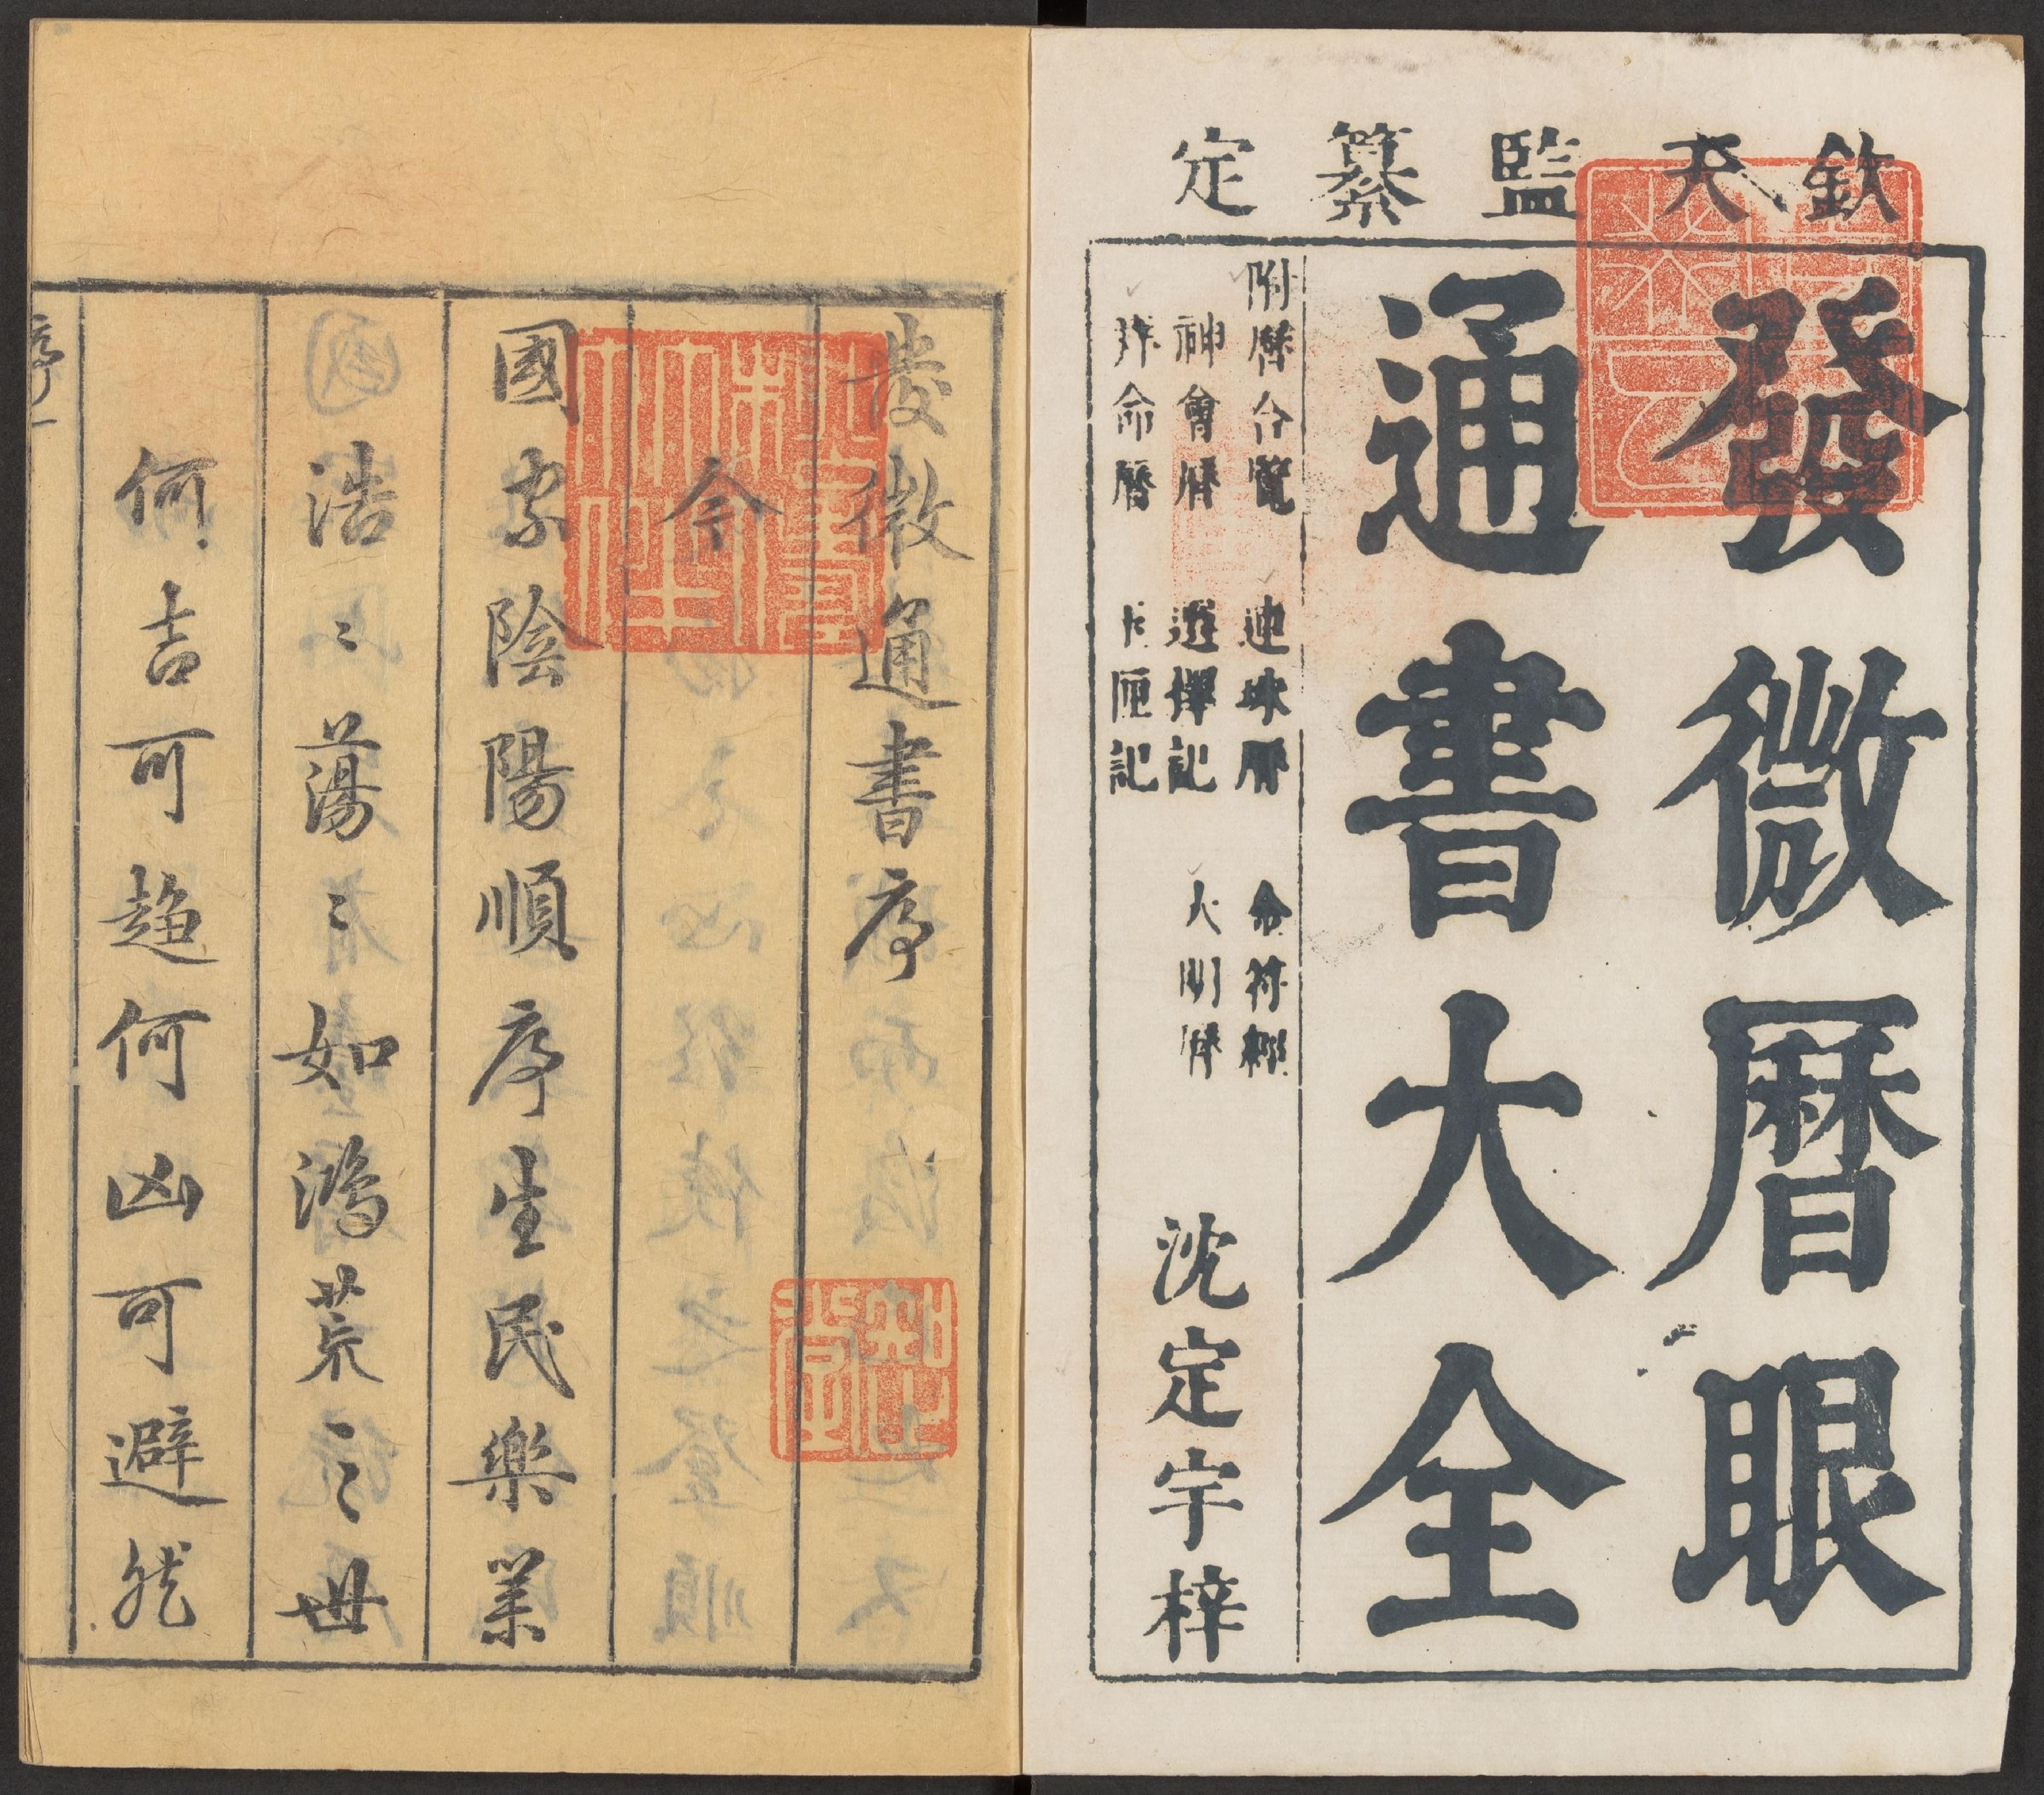 欽天監纂定
發微曆眼
通書大全
附曆合覽 連珠曆 合符經
神會曆 選擇記 大明曆
拜命曆 卜匣記
沈定宇梓
發微通書序
今
國家陰陽順序生民樂業
浩〻蕩〻如鴻荒之〻世
何吉可趨何凶可避然
序 一
知止堂